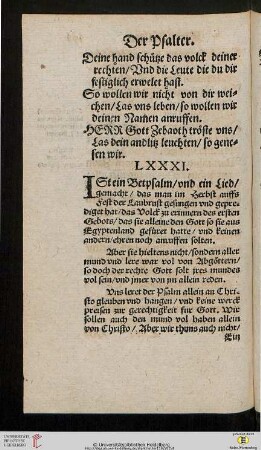 Der Psalter.
Deine hand schütze das volck deiner
rechten/ Vnd die Leute die du dir
festiglich erwelet hast.
So wollen wir nicht von dir wei-
chen/ Las vns leben/ so wollen wir
deinen Namen anruffen.
HERR Gott Zebaoth tröste vns/
Las dein andlitz leuchten/ so gene-
sen wir.
LXXXI.
ISt ein Betpsalm/ vnd ein Lied/
gemacht/ das man im Herbst auffs
Fest der Laubrust gesungen vnd gepre-
diget hat/ das Volck zu erinnern des ersten
Gebots/ das sie allein den Gott so sie aus
Egyptenland gefüret hatte/ vnd keinen
andern/ ehren noch anruffen solten.
Aber sie hieltens nicht/ sondern aller
mund vnd lere war vol von Abgöttern/
so doch der rechte Gott solt jres mundes
vol sein/ vnd jmer von jm allein reden.
Vns leret der Psalm allein an Chri-
sto gleuben vnd hangen/ vnd keine werck
preisen zur gerechtigkeit fur Gott. Wir
sollen auch den mund vol haben allein
von Christo/ Aber wir thuns auch nicht/
Ein
© Universitätsbibliothek Heidelberg